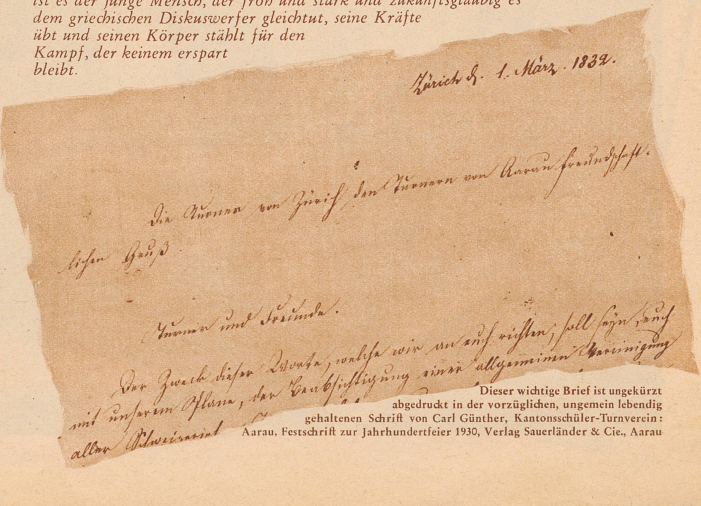 ist es der junge Mensch, der froh und stark und zukunftsgläubig es
dem griechischen Diskuswerfer gleichtut, seine Kräfte
übt und seinen Körper stählt für den
Kampf, der keinem erspart
bleibt.
Zürich d. 1. März. 1832.
Die Turner von Zürich den Turnern von Aarau freundschaft-
lichen Gruß
Turner und Freunde.
Der Zweck dieser Worte, welche wir an euch richten, soll seyn, euch
mit unserem Plane, der Beabsichtigung einer allgemeinen Vereinigung
aller
Dieser wichtige Brief ist ungekürzt
abgedruckt in der vorzüglichen, ungemein lebendig
gehaltenen Schrift von Carl Günther, Kantonsschüler-Turnverein:
Aarau, Festschrift zur Jahrhundertfeier 1930, Verlag Sauerländer & Cie., Aarau